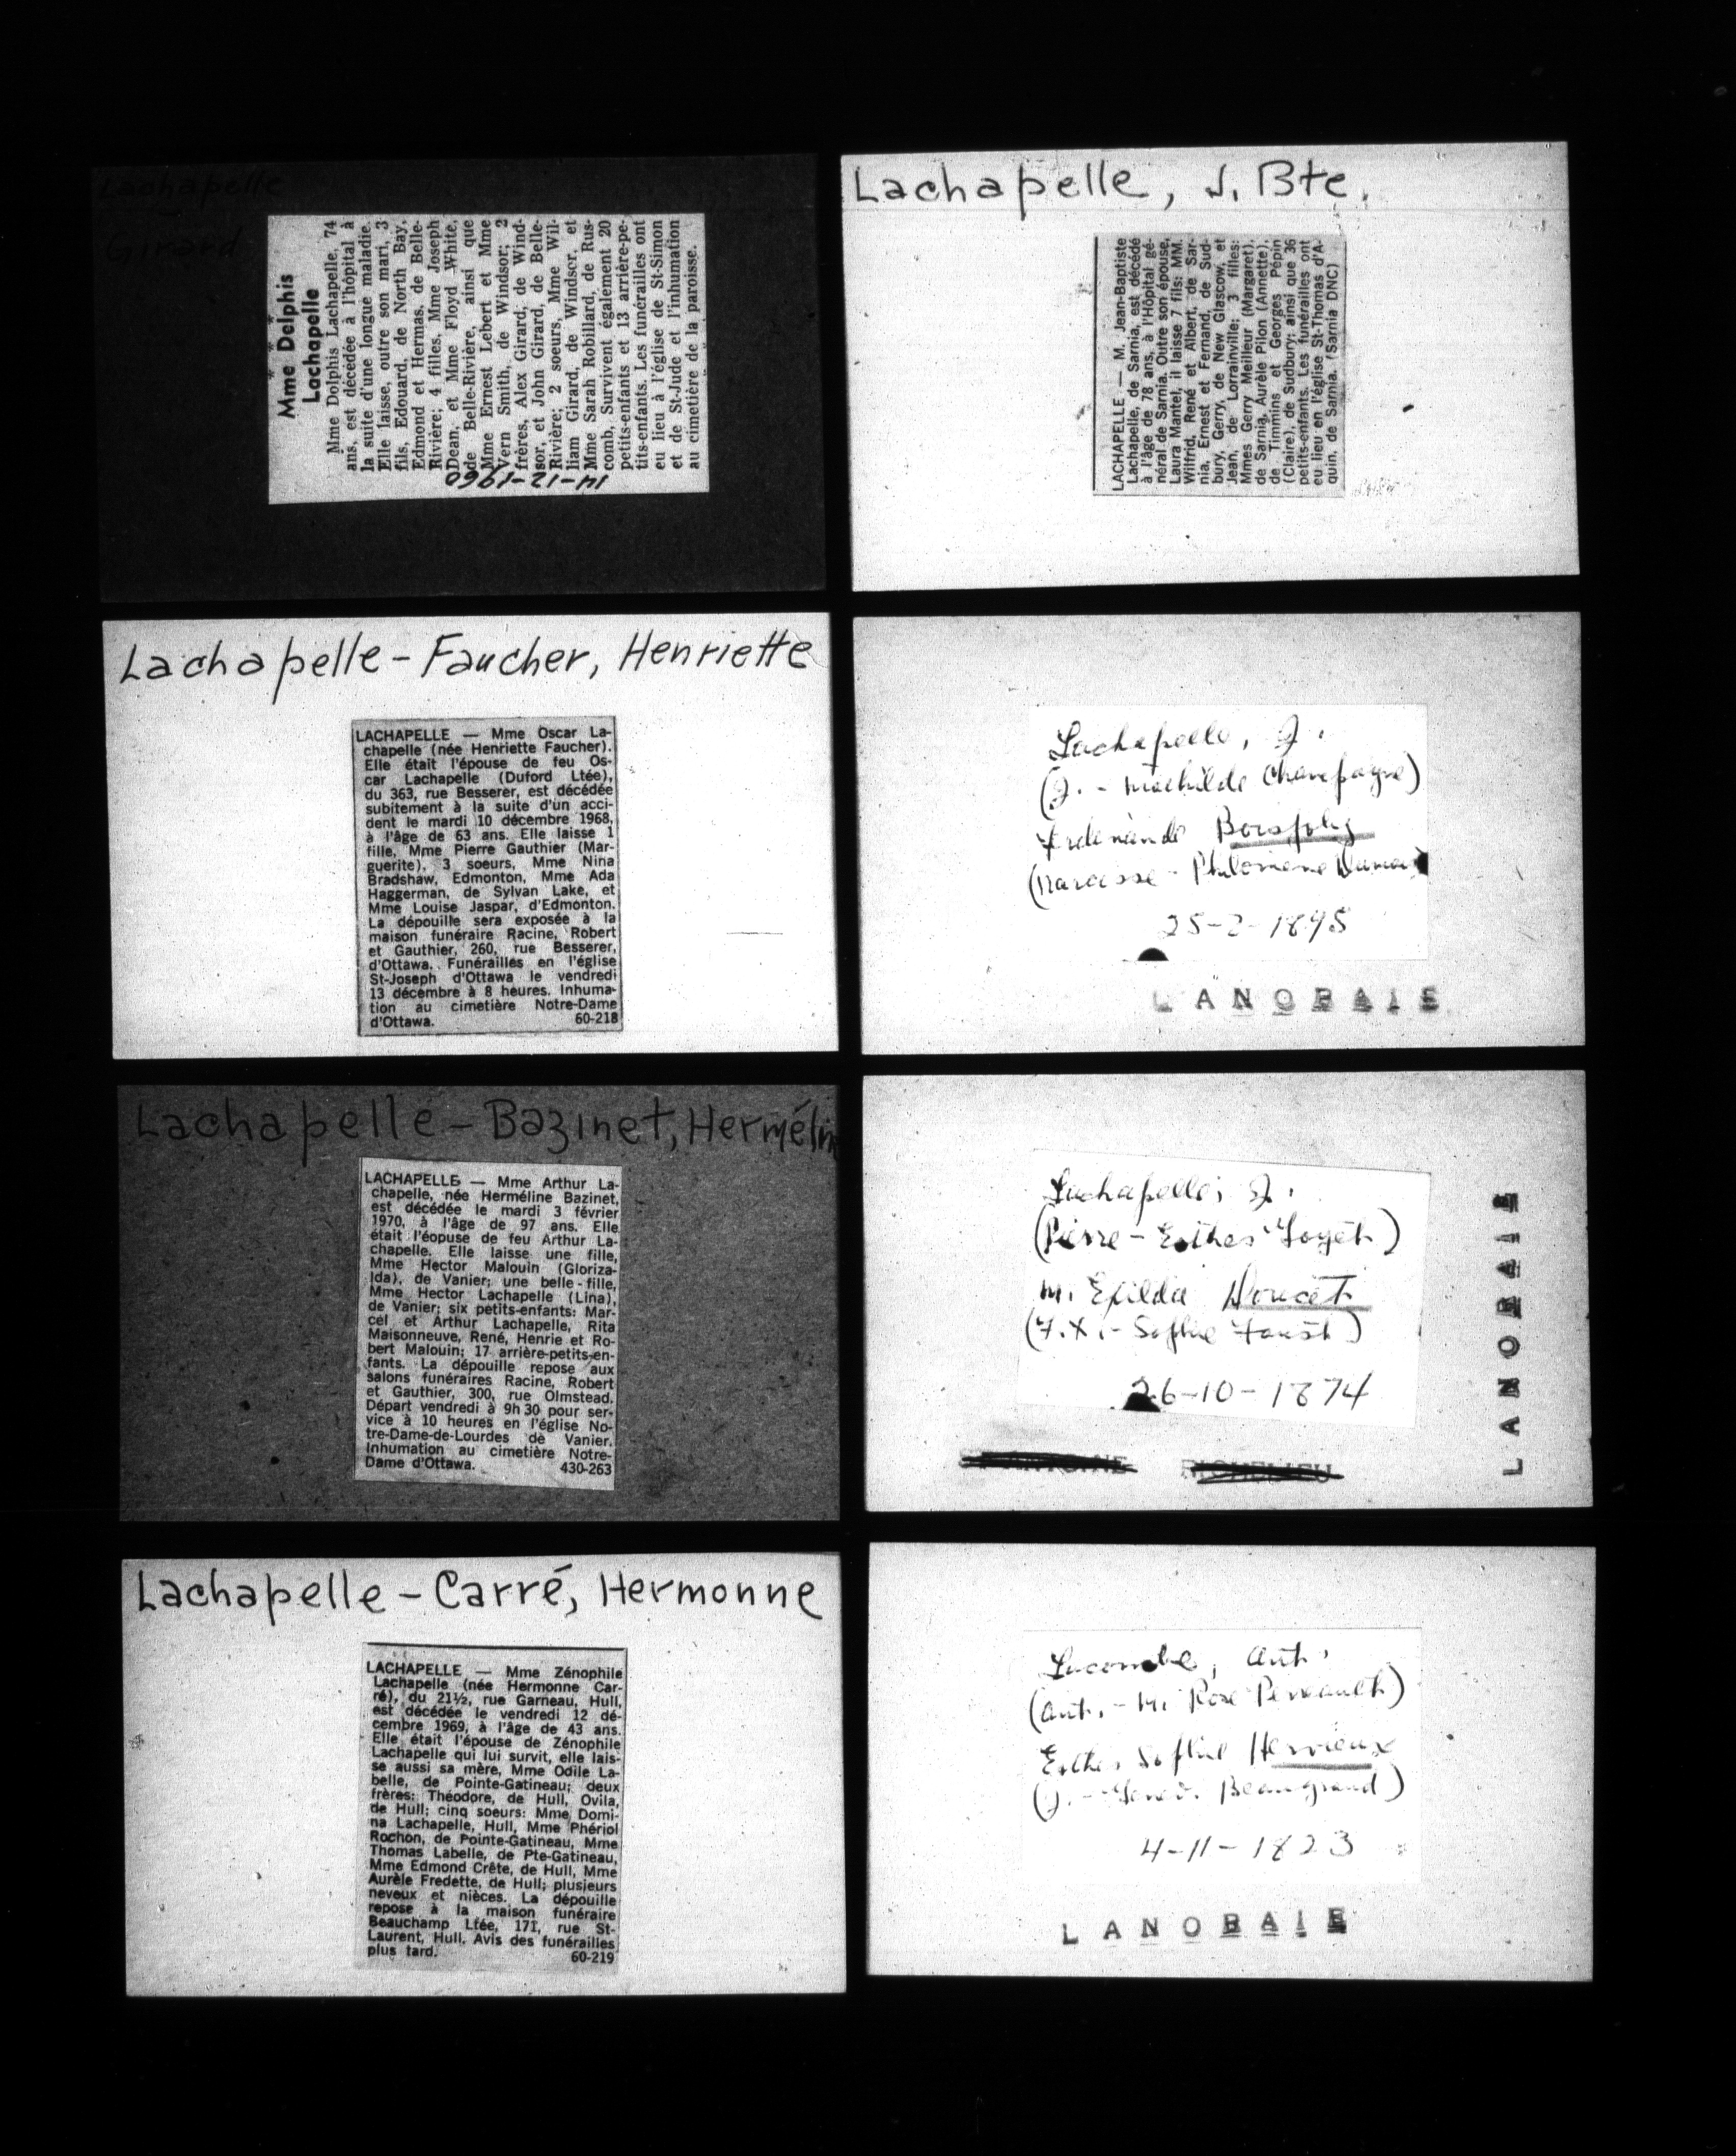 Lachapelle
Girard
Mme Delphis
Lachapelle
Mme Dolphis Lachapelle, 74
ans, est décédée à l'hôpital à
la suite d'une longue maladie.
Elle laisse, outre son mari, 3
fils, Edouard, de North Bay,
Edmond et Hermas, de Belle-
Rivière; 4 filles, Mme Joseph
Dean, et Mme Floyd White,
de Belle-Rivière, ainsi que
Mme Ernest Lebert et Mme
Vern Smith, de Windsor; 2
frères, Alex Girard, de Wind-
sor, et John Girard, de Belle-
Rivière; 2 soeurs, Mme Wil-
liam Girard, de Windsor, et
Mme Sarah Robillard, de Rus-
comb. Survivent également 20
petits-enfants et 13 arrière-pe-
tits-enfants. Les funérailles ont
eu lieu à l'église de St-Simon
et de St-Jude et l'inhumation
au cimetière de la paroisse.
14-12-1960
Lachapelle, J. Bte.
LACHAPELLE — M. Jean-Baptiste
Lachapelle, de Sarnia, est décédé
à l'âge de 78 ans, à l'Hôpital gé-
néral de Sarnia. Outre son épouse,
Laura Mantel, il laisse 7 fils: MM.
Wilfrid, René et Albert, de Sar-
nia, Ernest et Fernand, de Sud-
bury, Gerry, de New Glascow, et
Jean, de Lorrainville; 3 filles:
Mmes Gerry Meilleur (Margaret),
de Sarnia, Aurèle Pilon (Annette),
de Timmins et Georges Pépin
(Claire), de Sudbury; ainsi que 36
petits-enfants. Les funérailles ont
eu lieu en l'église St-Thomas d'A-
quin, de Sarnia. (Sarnia DNC)
Lachapelle - Faucher, Henriette
LACHAPELLE — Mme Oscar La-
chapelle (née Henriette Faucher).
Elle était l'épouse de feu Os-
car Lachapelle (Duford Ltée),
du 363, rue Besserer, est décédée
subitement à la suite d'un acci-
dent le mardi 10 décembre 1968,
à l'âge de 63 ans. Elle laisse 1
fille, Mme Pierre Gauthier (Mar-
guerite), 3 soeurs, Mme Nina
Bradshaw, Edmonton, Mme Ada
Haggerman, de Sylvan Lake, et
Mme Louise Jaspar, d'Edmonton.
La dépouille sera exposée à la
maison funéraire Racine, Robert
et Gauthier, 260, rue Besserer,
d'Ottawa. Funérailles en l'église
St-Joseph d'Ottawa le vendredi
13 décembre à 8 heures. Inhuma-
tion au cimetière Notre-Dame
d'Ottawa. 60-218
Lachapelle, J.
(J. - Mathilde Champagne)
Boisjoly
(Narcisse - Philomène
25-2-1895
LANORAIE
Lachapelle - Bazinet, Herméline
LACHAPELLE — Mme Arthur La-
chapelle, née Herméline Bazinet,
est décédée le mardi 3 février
1970, à l'âge de 97 ans. Elle
était l'éopuse de feu Arthur La-
chapelle. Elle laisse une fille,
Mme Hector Malouin (Gloriza-
lda), de Vanier; une belle-fille,
Mme Hector Lachapelle (Lina),
de Vanier; six petits-enfants: Mar-
cel et Arthur Lachapelle, Rita
Maisonneuve, René, Henrie et Ro-
bert Malouin; 17 arrière-petits-en-
fants. La dépouille repose aux
salons funéraires Racine, Robert
et Gauthier, 300, rue Olmstead.
Départ vendredi à 9h 30 pour ser-
vice à 10 heures en l'église No-
tre-Dame-de-Lourdes de Vanier.
Inhumation au cimetière Notre-
Dame d'Ottawa. 430-263
Lachapelle, J.
(Pierre - Esther Goyet)
m. Exilda Doucet
(F.X. - Sophie Faust)
26-10-1874
LANORAIE
Lachapelle - Carré, Hermonne
LACHAPELLE — Mme Zénophile
Lachapelle (née Hermonne Car-
ré), du 21½, rue Garneau, Hull,
est décédée le vendredi 12 dé-
cembre 1969, à l'âge de 43 ans.
Elle était l'épouse de Zénophile
Lachapelle qui lui survit, elle lais-
se aussi sa mère, Mme Odile La-
belle, de Pointe-Gatineau; deux
frères: Théodore, de Hull, Ovila,
de Hull; cinq soeurs: Mme Domi-
na Lachapelle, Hull, Mme Phériol
Rochon, de Pointe-Gatineau, Mme
Thomas Labelle, de Pte-Gatineau,
Mme Edmond Crête, de Hull, Mme
Aurèle Fredette, de Hull; plusieurs
neveux et nièces. La dépouille
repose à la maison funéraire
Beauchamp Ltée, 171, rue St-
Laurent, Hull. Avis des funérailles
plus tard. 60-219
Lacombe, Ant.
(Ant. - M. Rose Perreault)
Esther Sophie Hervieux
(J. - Genev. Beaugrand)
4-11-1823
LANORAIE